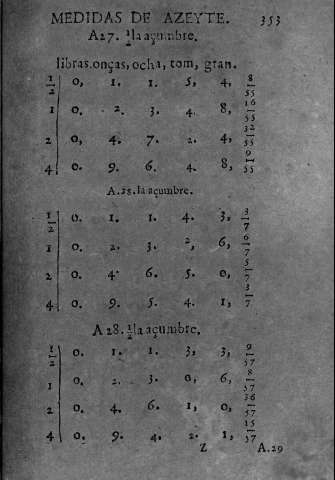 MEDIDAS DE AZEYTE. 353
A27. 1/2 la açumbre.
libras. onças, ocha, tom, gran.
1/2 | 0, 1. 1. 5, 4, 8/55
1 | 0. 2. 3. 4. 8, 16/55
2 | 0, 4. 7. 2. 4, 32/55
4 | 0. 9. 6. 4. 8, 9/55
A. 28. la açumbre.
1/2 | 0. 1. 1. 4. 3, 3/7
1 | 0. 2. 3. 2, 6, 6/7
2 | 0. 4. 6. 5. 0, 5/7
4 | 0. 9. 5. 4. 1, 3/7
A 28. 1/2 la açumbre.
1/2 | 0. 1. 1. 3, 3, 9/57
1 | 0. 2. 3. 0, 6, 8/57
2 | 0. 4. 6. 1, 0, 36/57
4 | 0. 9. 4. 2. 1, 15/57
Z A.29